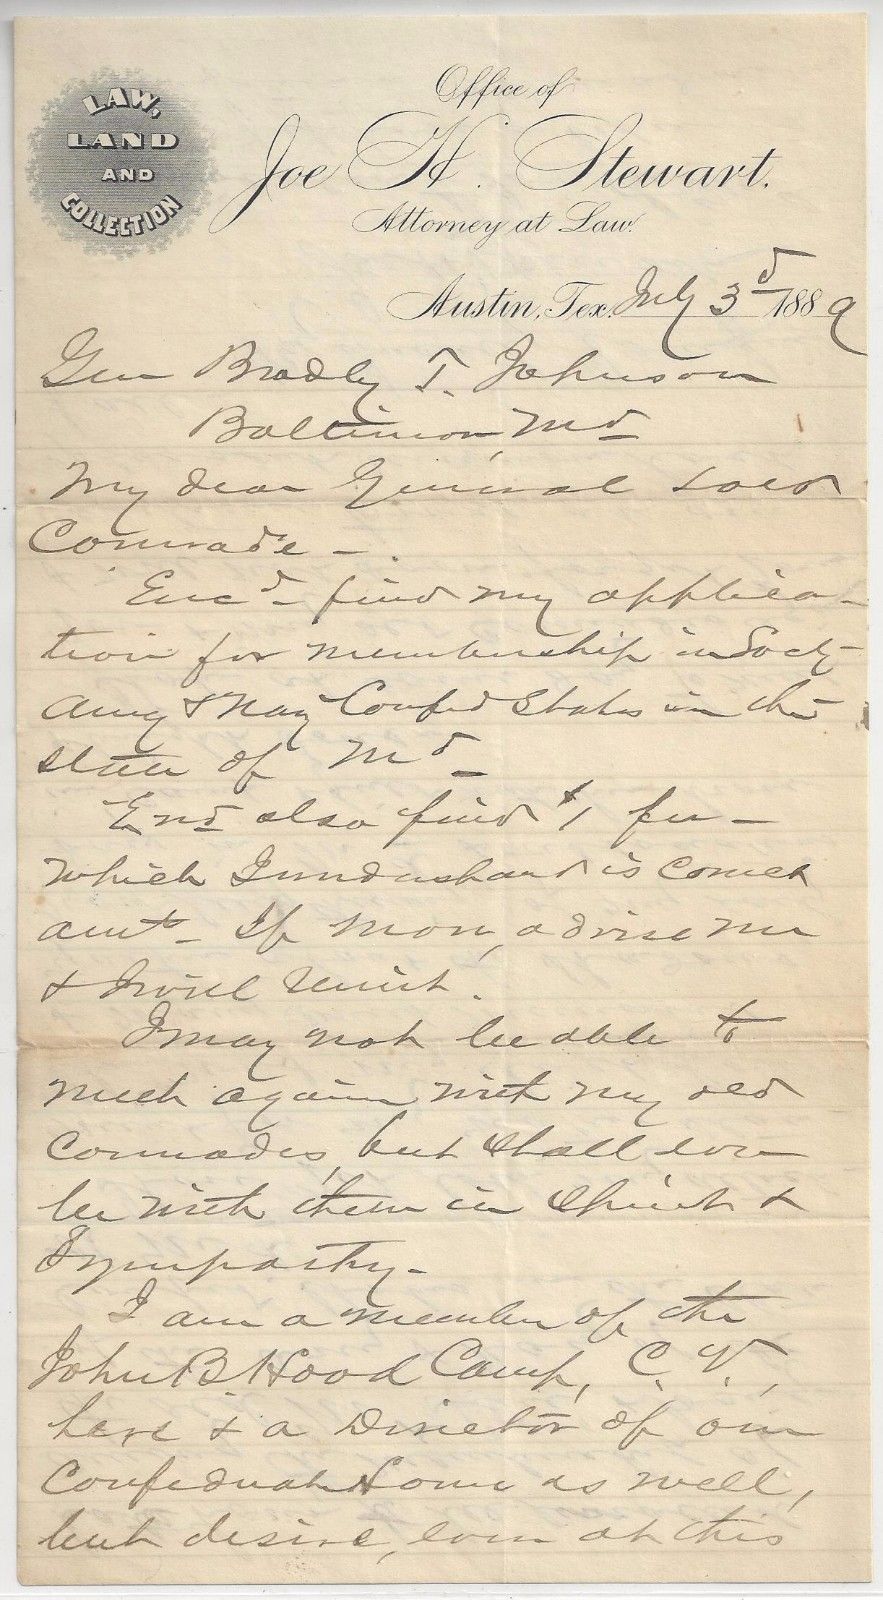 LAW,
LAND
AND
COLLECTION
Office of
Joe H. Stewart.
Attorney at Law.
Austin, Tex. July 3d 1889
Gen Bradley T. Johnson
Baltimore, Md
My dear General & old
Comrade -
Encd - find my applica-
tion for membership in Socty
Army & Navy Confed States in the
state of Md -
End also find $1 for
which I understand is correct
amt - If more, advise me
& I will remit.
I may not be able to
meet again with my old
comrades, but shall ever
be with them in Spirit &
Sympathy -
I am a member of the
John B Hood Camp, C. V.,
here & a Director of our
Confederate Home as well,
but desire, even at this